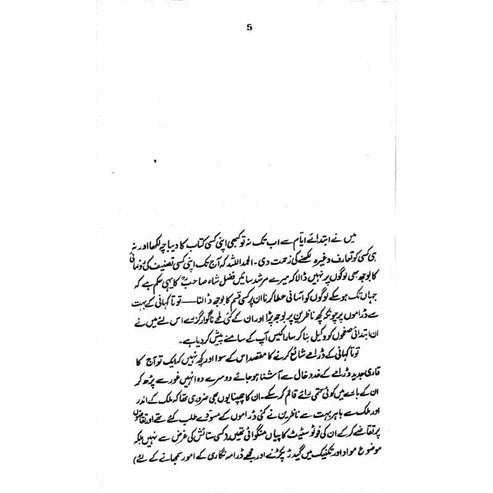 5
میں نے ابتدائے ایّام سے اب تک نہ تو کبھی اپنی کسی کتاب کا دیباچہ لکھا اور نہ
ہی کسی کو تعارف وغیرہ لکھنے کی زحمت دی۔ الحمدللہ کہ آج تک اپنی کسی تصنیف کی
کا بوجھ بھی لوگوں پر نہیں ڈالا کہ میرے مرشد سائیں فضل شاہ صاحبؒ کا یہی حکم ہے کہ
جہاں تک ہو سکے لوگوں کو آسانی عطا کرنا ان پر کسی قسم کا بوجھ نہ ڈالنا — توتا کہانی کے بہت
سے ڈراموں پر چونکہ کچھ ناظرین پر بوجھ پڑا اور ان کے کئی لمحے ناگوار گزرے اس لئے میں نے
ان ابتدائی صفحوں کو وکیل بنا کر سارا کیس آپ کے سامنے پیش کر دیا ہے۔
توتا کہانی کے ڈرامے شائع کرنے کا مقصد اس کے سوا اور کچھ نہیں کہ ایک تو آج کا
قاری جدید ڈرامے کے خدوخال سے آشنا ہو جائے دوسرے وہ انہیں غور سے پڑھ کر
ان کے بارے میں کوئی حتمی رائے قائم کر سکے۔ ان کا چھپنا یوں بھی ضروری تھا کہ ملک کے اندر
اور ملک سے باہر بہت سے ناظرین نے کئی ڈراموں کے مسودے طلب کئے تھے اور
پر تقاضے کر کے ان کی فوٹو سٹیٹ کاپیاں منگوائی تھیں کسی ستائش کی غرض سے نہیں بلکہ
موضوع مواد اور تکنیک میں کیڑے پکڑنے اور مجھے ڈرامہ نگاری کے امور سمجھانے کے لئے)